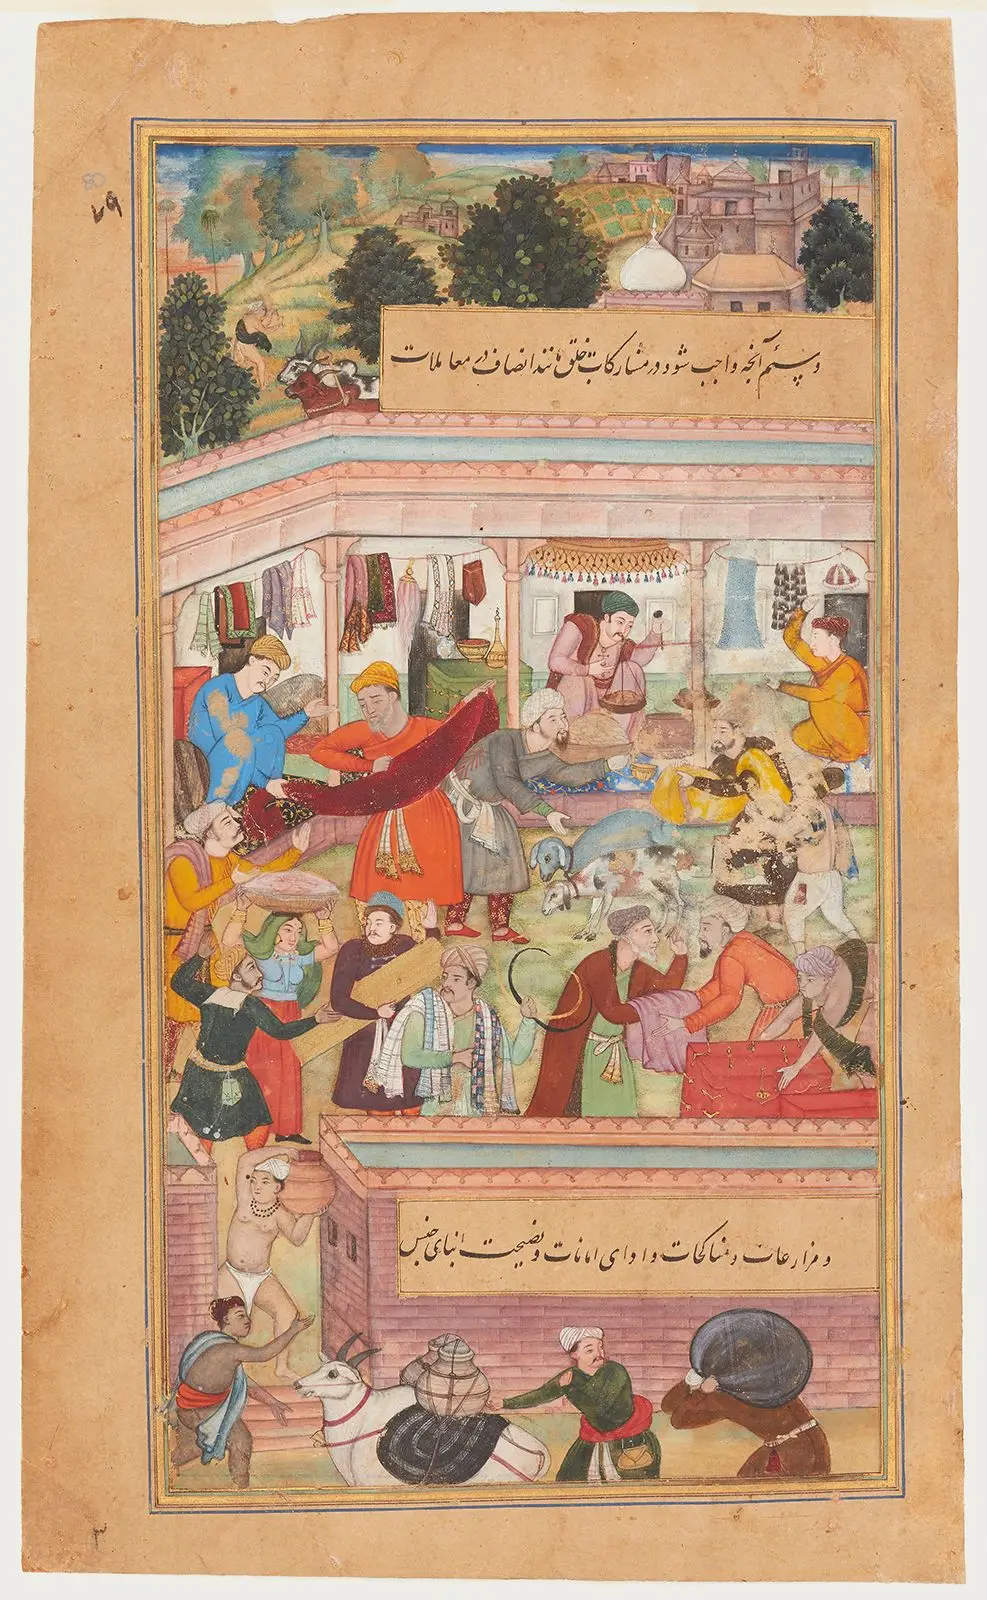 ۷۹
وسیم آنچه واجب شود در مشارکات خلق مانند انصاف در معاملات
و مزارعات و مناکحات و ادای امانات و نصیحت ابنای جنس